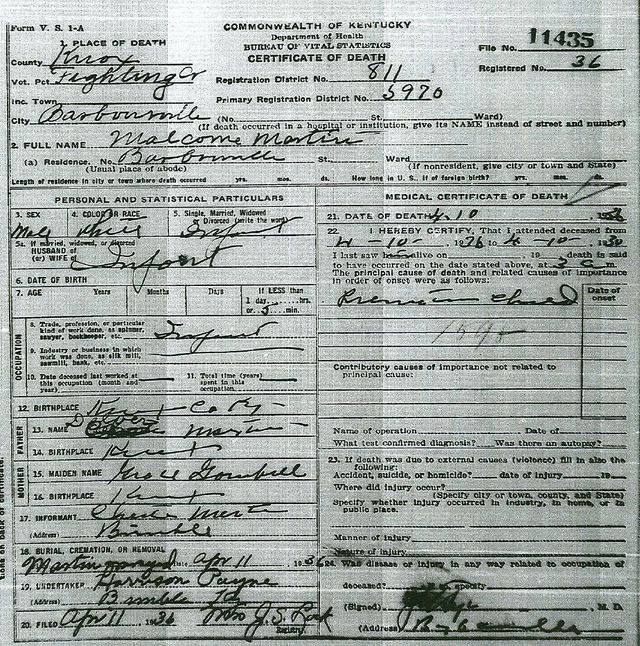 Form V. S. 1-A
COMMONWEALTH OF KENTUCKY
Department of Health
BUREAU OF VITAL STATISTICS
CERTIFICATE OF DEATH
File No. 11435
Registered No. 36
1. PLACE OF DEATH
County Knox
Vot. Pct. Fighting Cr
Inc. Town
City Barbourville
Registration District No. 811
Primary Registration District No. 5970
(No. St., Ward)
(If death occurred in a hospital or institution, give its NAME instead of street and number)
2. FULL NAME Malcome Martin
(a) Residence. No. Barbourville St., Ward
(Usual place of abode) (If nonresident, give city or town and State)
Length of residence in city or town where death occurred yrs. mos. ds. How long in U. S., if of foreign birth? yrs. mos. ds.
PERSONAL AND STATISTICAL PARTICULARS
3. SEX 4. COLOR OR RACE 5. Single, Married, Widowed
or Divorced (write the word)
Male Infant
5a. If married, widowed, or divorced
HUSBAND of
(or) WIFE of Infant
6. DATE OF BIRTH
7. AGE Years Months Days If LESS than
1 day, hrs.
or 5 min.
OCCUPATION
8. Trade, profession, or particular
kind of work done, as spinner,
sawyer, bookkeeper, etc. Infant
9. Industry or business in which
work was done, as silk mill,
sawmill, bank, etc.
10. Date deceased last worked at
this occupation (month and
year)
11. Total time (years)
spent in this
occupation
12. BIRTHPLACE Knox Co Ky
FATHER
13. NAME Martin
14. BIRTHPLACE Knox
MOTHER
15. MAIDEN NAME Grace
16. BIRTHPLACE Knox
17. INFORMANT Martin
(Address) Bimble
18. BURIAL, CREMATION, OR REMOVAL
Martin Date Apr 11 1936
19. UNDERTAKER Harrison Payne
(Address) Bimble Ky
20. FILED Apr 11 1936 Mrs J. S.
Registrar.
MEDICAL CERTIFICATE OF DEATH
21. DATE OF DEATH 4 10 1936
22. I HEREBY CERTIFY, That I attended deceased from
4-10- 1936 to 4-10- 1936
I last saw h alive on 19 death is said
to have occurred on the date stated above, at 3 m.
The principal cause of death and related causes of importance
in order of onset were as follows:
Date of
onset
Child
Contributory causes of importance not related to
principal cause:
Name of operation Date of
What test confirmed diagnosis? Was there an autopsy?
23. If death was due to external causes (violence) fill in also the
following:
Accident, suicide, or homicide? date of injury 19
Where did injury occur?
(Specify city or town, county, and State)
Specify whether injury occurred in industry, in home, or in
public place.
Manner of injury
Nature of injury
24. Was disease or injury in any way related to occupation of
deceased? If so, specify
(Signed) M. D.
(Address) Barbourville